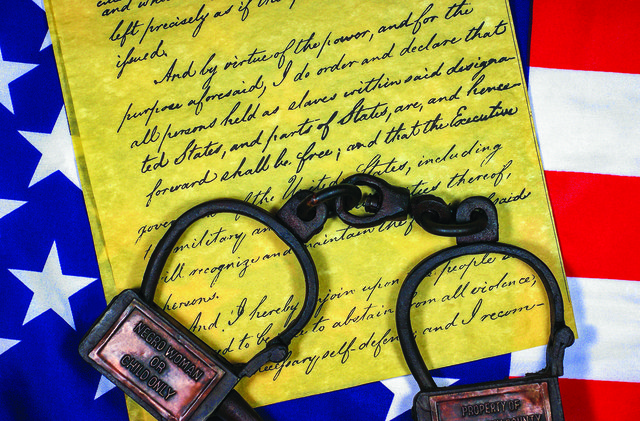 left precisely as if
issued.
And by virtue of the power, and for the
purpose aforesaid, I do order and declare that
all persons held as slaves within said designa-
ted States, and parts of States, are, and hence-
forward shall be free; and that the Executive
of the United States, including
military and thereof,
will recognize and maintain the
persons.
And I hereby upon people
to abstain from all violence;
necessary self-defence; and I recom-
NEGRO WOMAN
OR
CHILD ONLY
PROPERTY OF
COUNTY